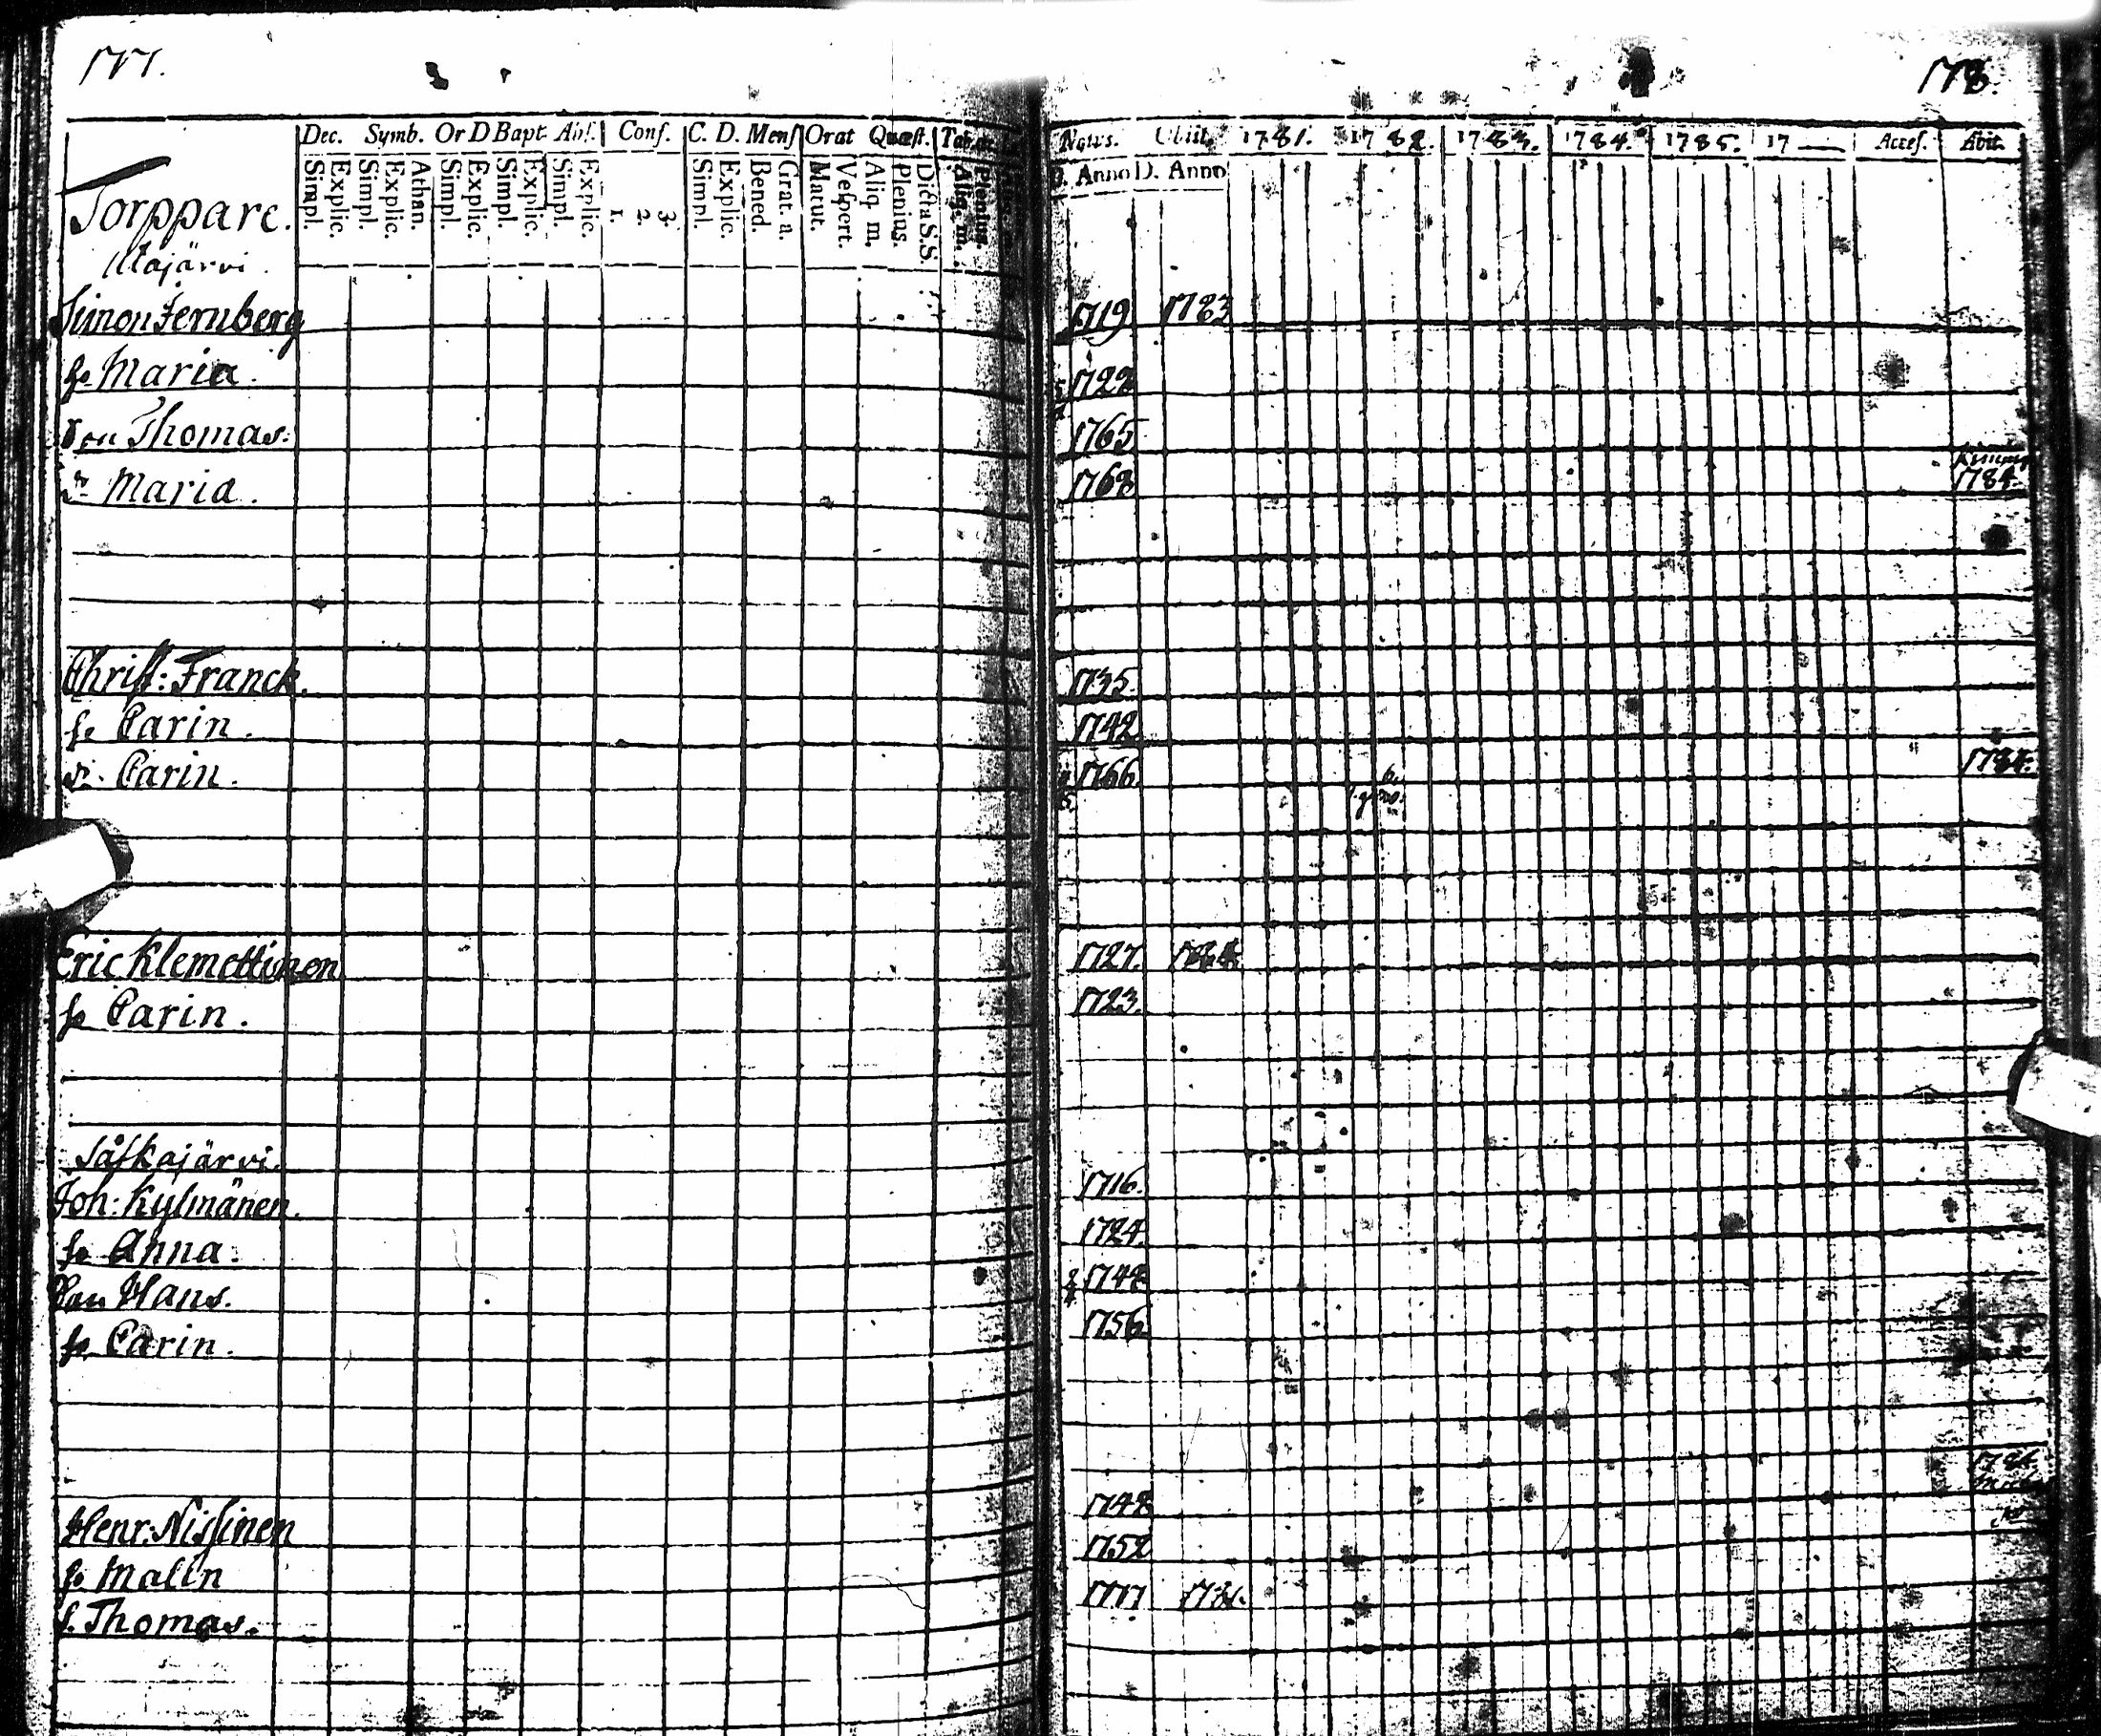 177.
Dec. Symb. Or D Bapt. Abs. Conf. C. D. Mens Orat Quæst. Tab.
Simpl. Explic. Simpl. Explic. Athan. Simpl. Explic. Simpl. Explic. Simpl. Explic. 1. 2. 3. Simpl. Explic. Bened. Grat. a. Matut. Vespert. Aliq. m. Plenius. Dicta S.S. Aliq. m. Plenius.
Torppare.
Simon Fernberg
h. Maria.
Son Thomas.
Maria.
Christ: Franck.
h. Carin.
Carin.
Eric Klemettinen
h. Carin.
Såskajärvi.
Joh: Kylmänen.
h. Anna.
Son Hans.
h. Carin.
Henr: Nissinen
h. Malin
s. Thomas.
178.
Natus. Obiit. 1781. 1782. 1783. 1784. 1785. 17 Acces. Abit.
D. Anno D. Anno
1719 1783
1722
1765
1768 1784.
1735.
1742
1766. 1784.
1727.
1723.
1716.
1724.
1748
1756.
1748
1752
1777 1781.